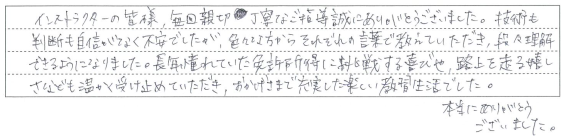 インストラクターの皆様、毎回親切丁寧なご指導誠にありがとうございました。技術も
判断も自信がなく不安でしたが、色々な方からそれぞれの言葉で教えていただき、段々理解
できるようになりました。長年憧れていた免許所得に挑戦する喜びや、路上を走る嬉し
さなども温かく受け止めていただき、おかげさまで充実した楽しい教習生活でした。
本当にありがとう
ございました。